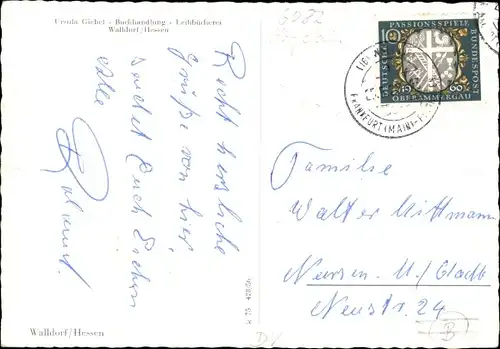 Ursula Gichel - Buchhandlung - Leihbücherei
Walldorf/Hessen
6082
Recht herzliche
Grüße von hier
sendet Euch
Alle
Roland!
Walldorf/Hessen
K 75 428/6
DEUTSCHE BUNDESPOST
PASSIONSSPIELE
10
1960
OBERAMMERGAU
FRANKFURT (MAIN)
Familie
Walter Mittmann
Neussen - M./Gladb
Neustr. 24
B